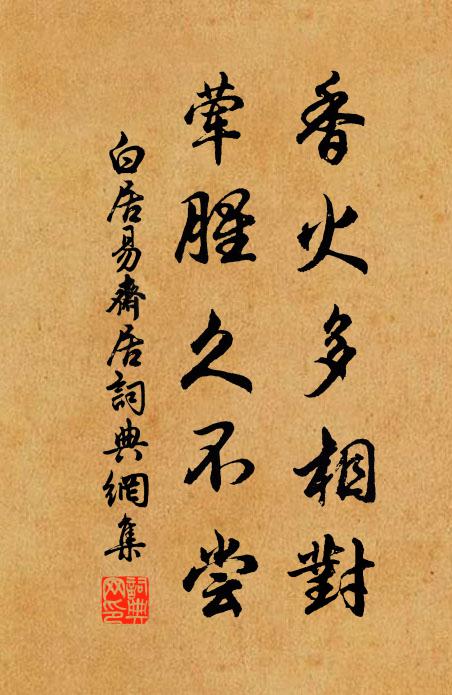 香火多相對
葷腥久不尝
白居易齋居詞典網集
詞典网印